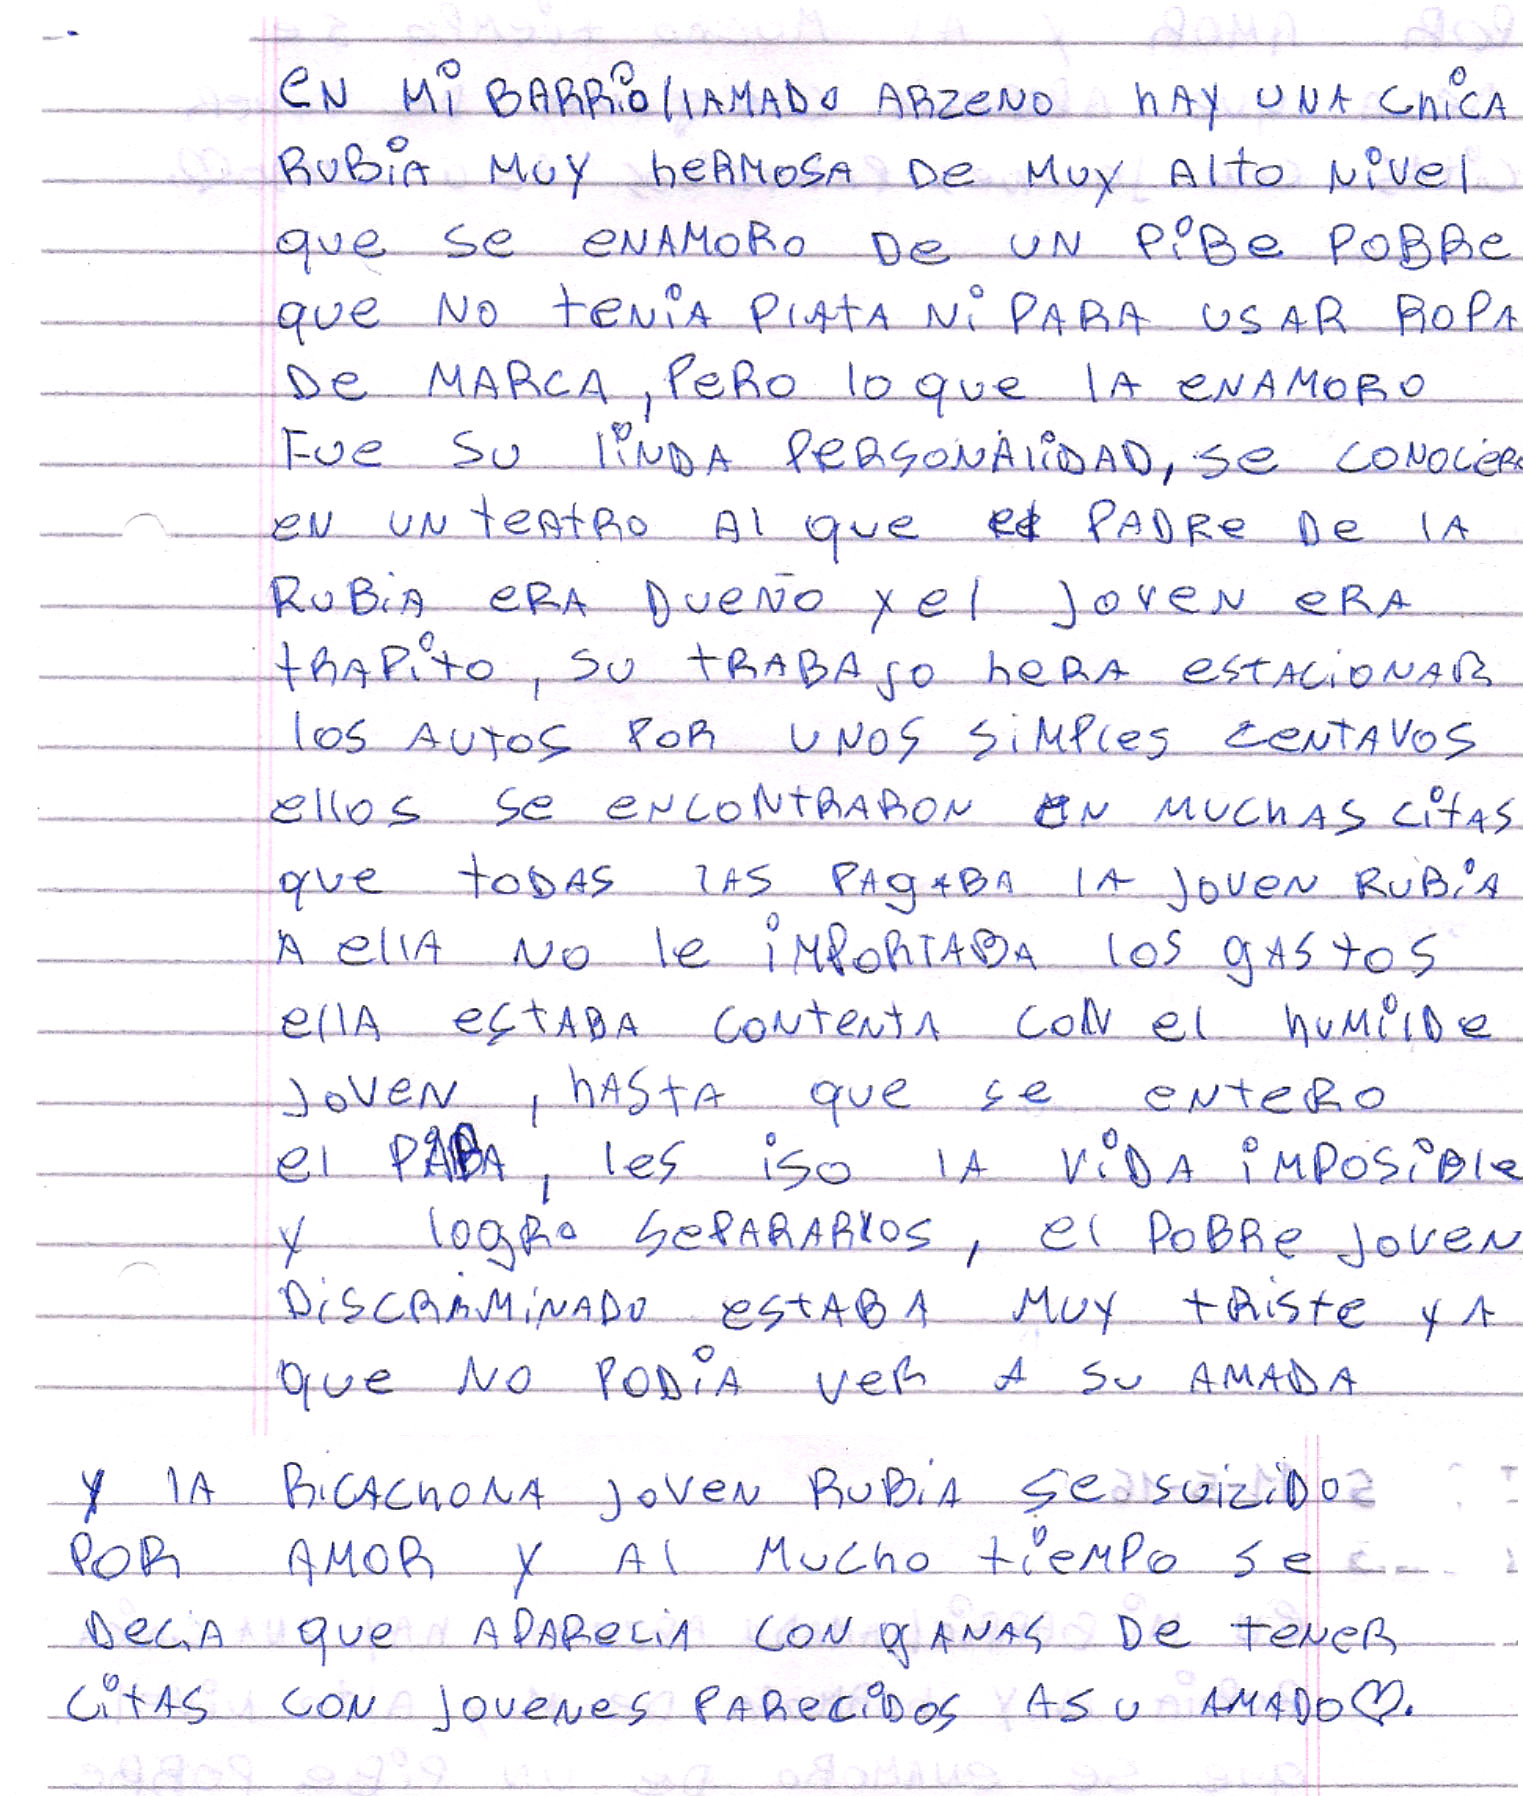 EN Mi BARRio llAMADO ARZENO hAY UNA ChiCA
RUBiA MUY heRMOSA De MUY Alto NiVel
que se eNAMORO De UN PiBe POBRe
que NO teNiA PlAtA Ni PARA USAR ROPA
De MARCA, PeRO lo que lA eNAMORO
Fue SU liNDA PeRSONAliDAD, se CONOCieRO
eN UN teAtRO Al que el PADRe De lA
RUBiA eRA DueÑO Y el JOVeN eRA
tRAPito, SU tRABAJO heRA eStACiONAR
los AUtOS POR UNOS SiMPles CeNtAVOS
ellos se eNCONtRARON eN MUChAS CitAS
que tODAS lAS PAgABA lA JOVeN RUBiA
A ellA NO le iMPORtABA lOS gAStOS
ellA eStABA CONteNtA CON el hUMilDe
JOVeN, hAStA que se eNteRO
el PAPA, les iso lA ViDA iMPOSiBle
Y logRo SePARARlOS, el POBRe JOVeN
DiSCRiMiNADO eStABA MUY tRiSte YA
que NO PODiA VeR A SU AMADA
Y lA RiCAChONA JOVeN RUBiA Se SuiziDO
POR AMOR Y Al MUCho tieMPO Se
DeCiA que APAReCiA CON gANAS De teNeR
CitAS CON JOVeNeS PAReCiDOS A SU AMADO♡.